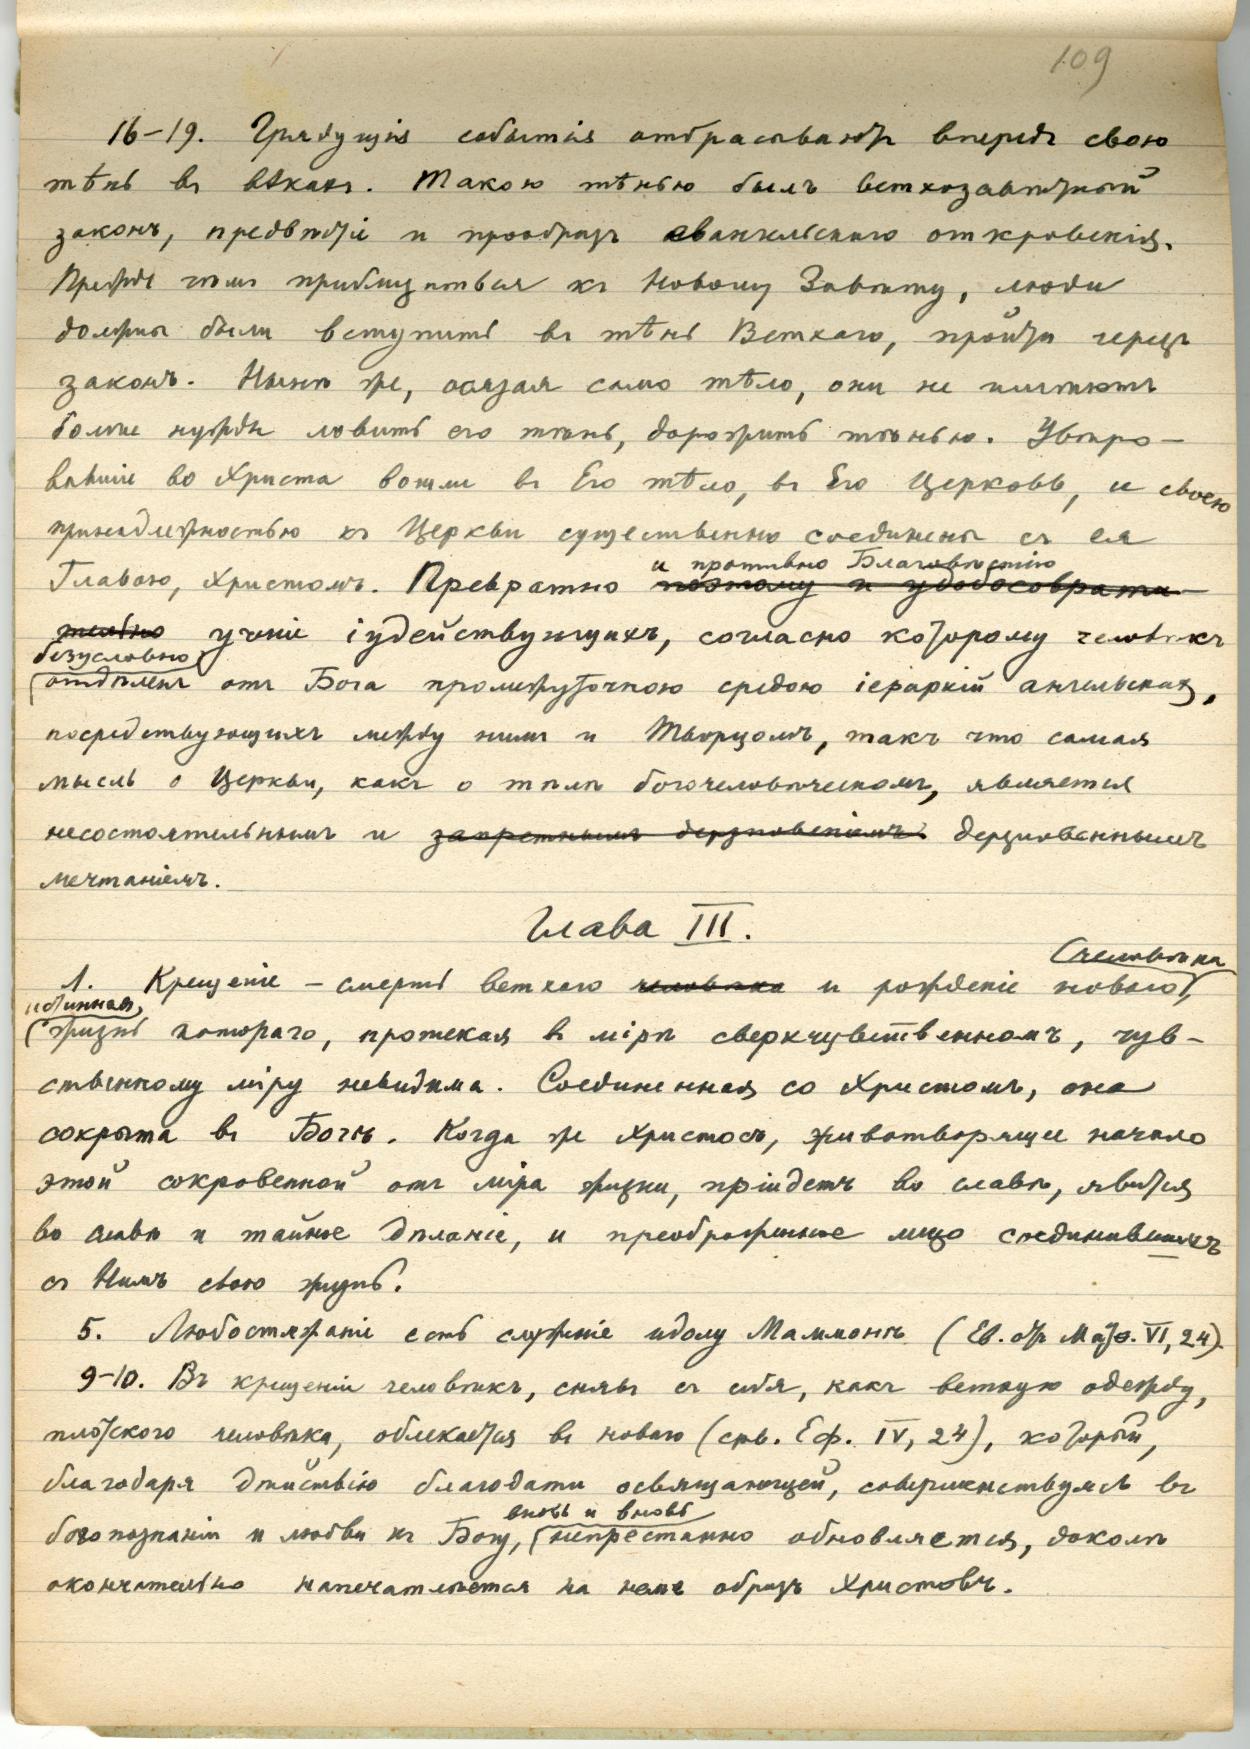 109
16–19. Грядущія событія отбрасываютъ впередъ свою
тѣнь въ вѣкахъ. Такою тѣнью былъ ветхозавѣтный
законъ, предвѣстіе и прообразъ евангельскаго откровенія.
Прежде чѣмъ пріобщиться къ Новому Завѣту, люди
должны были вступить въ тѣнь Ветхаго, пройти черезъ
законъ. Нынѣ же, осязая само тѣло, они не имѣютъ
болѣе нужды ловить его тѣнь, дорожить тѣнью. Увѣро–
вавшіе во Христа вошли въ Его тѣло, въ Его Церковь, и своею
принадлежностью къ Церкви существенно соединены съ ея
и противно Благовѣстію
Главою, Христомъ. Превратно поэтому и удобосоврати–
тельно ученіе іудействующихъ, согласно которому человѣкъ
безусловно
отдѣленъ отъ Бога промежуточною средою іерархій ангельскихъ,
посредствующихъ между нимъ и Творцомъ, такъ что самая
мысль о Церкви, какъ о тѣлѣ богочеловѣческомъ, является
несостоятельнымъ и запретнымъ дерзновеніемъ дерзновеннымъ
мечтаніемъ.
Глава III.
человѣка
1. Крещеніе – смерть ветхаго человѣка и рожденіе новаго,
истинная
жизнь котораго, протекая въ мірѣ сверхчувственномъ, чув–
ственному міру невидима. Соединенная со Христомъ, она
сокрыта въ Богѣ. Когда же Христосъ, животворящее начало
этой сокровенной отъ міра жизни, пріидетъ во славѣ, явится
во славѣ и тайное дѣланіе, и преображенное лицо соединившихъ
съ Нимъ свою жизнь.
5. Любостяжаніе есть служеніе идолу Маммонѣ (Ев. отъ Матѳ. VI, 24).
9–10. Въ крещеніи человѣкъ, снявъ съ себя, какъ ветхую одежду,
плотского человѣка, облекается въ новаго (срв. Еф. IV, 24), который,
благодаря дѣйствію благодати освящающей, совершенствуясь въ
вновь и вновь
богопознаніи и любви къ Богу, непрестанно обновляется, доколѣ
окончательно напечатлѣется на немъ образъ Христовъ.